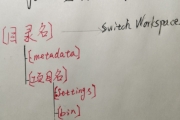 [目录名] Switch Workspace
[metadata]
[项目名]
[settings]
[bin]